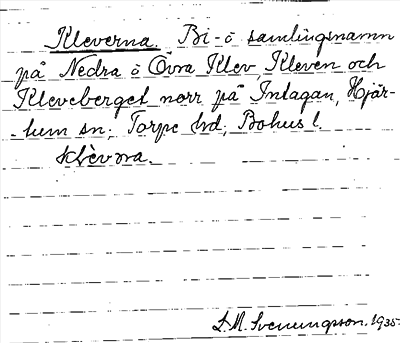 Kleverna. Bi- o samlingsnamn
på Nedra o Övra Klev, Kleven och
Kleveberget norr på Intagan, Hjär-
-tum sn; Torpe hd, Bohus l.
S. M. Svenungsson. 1935.